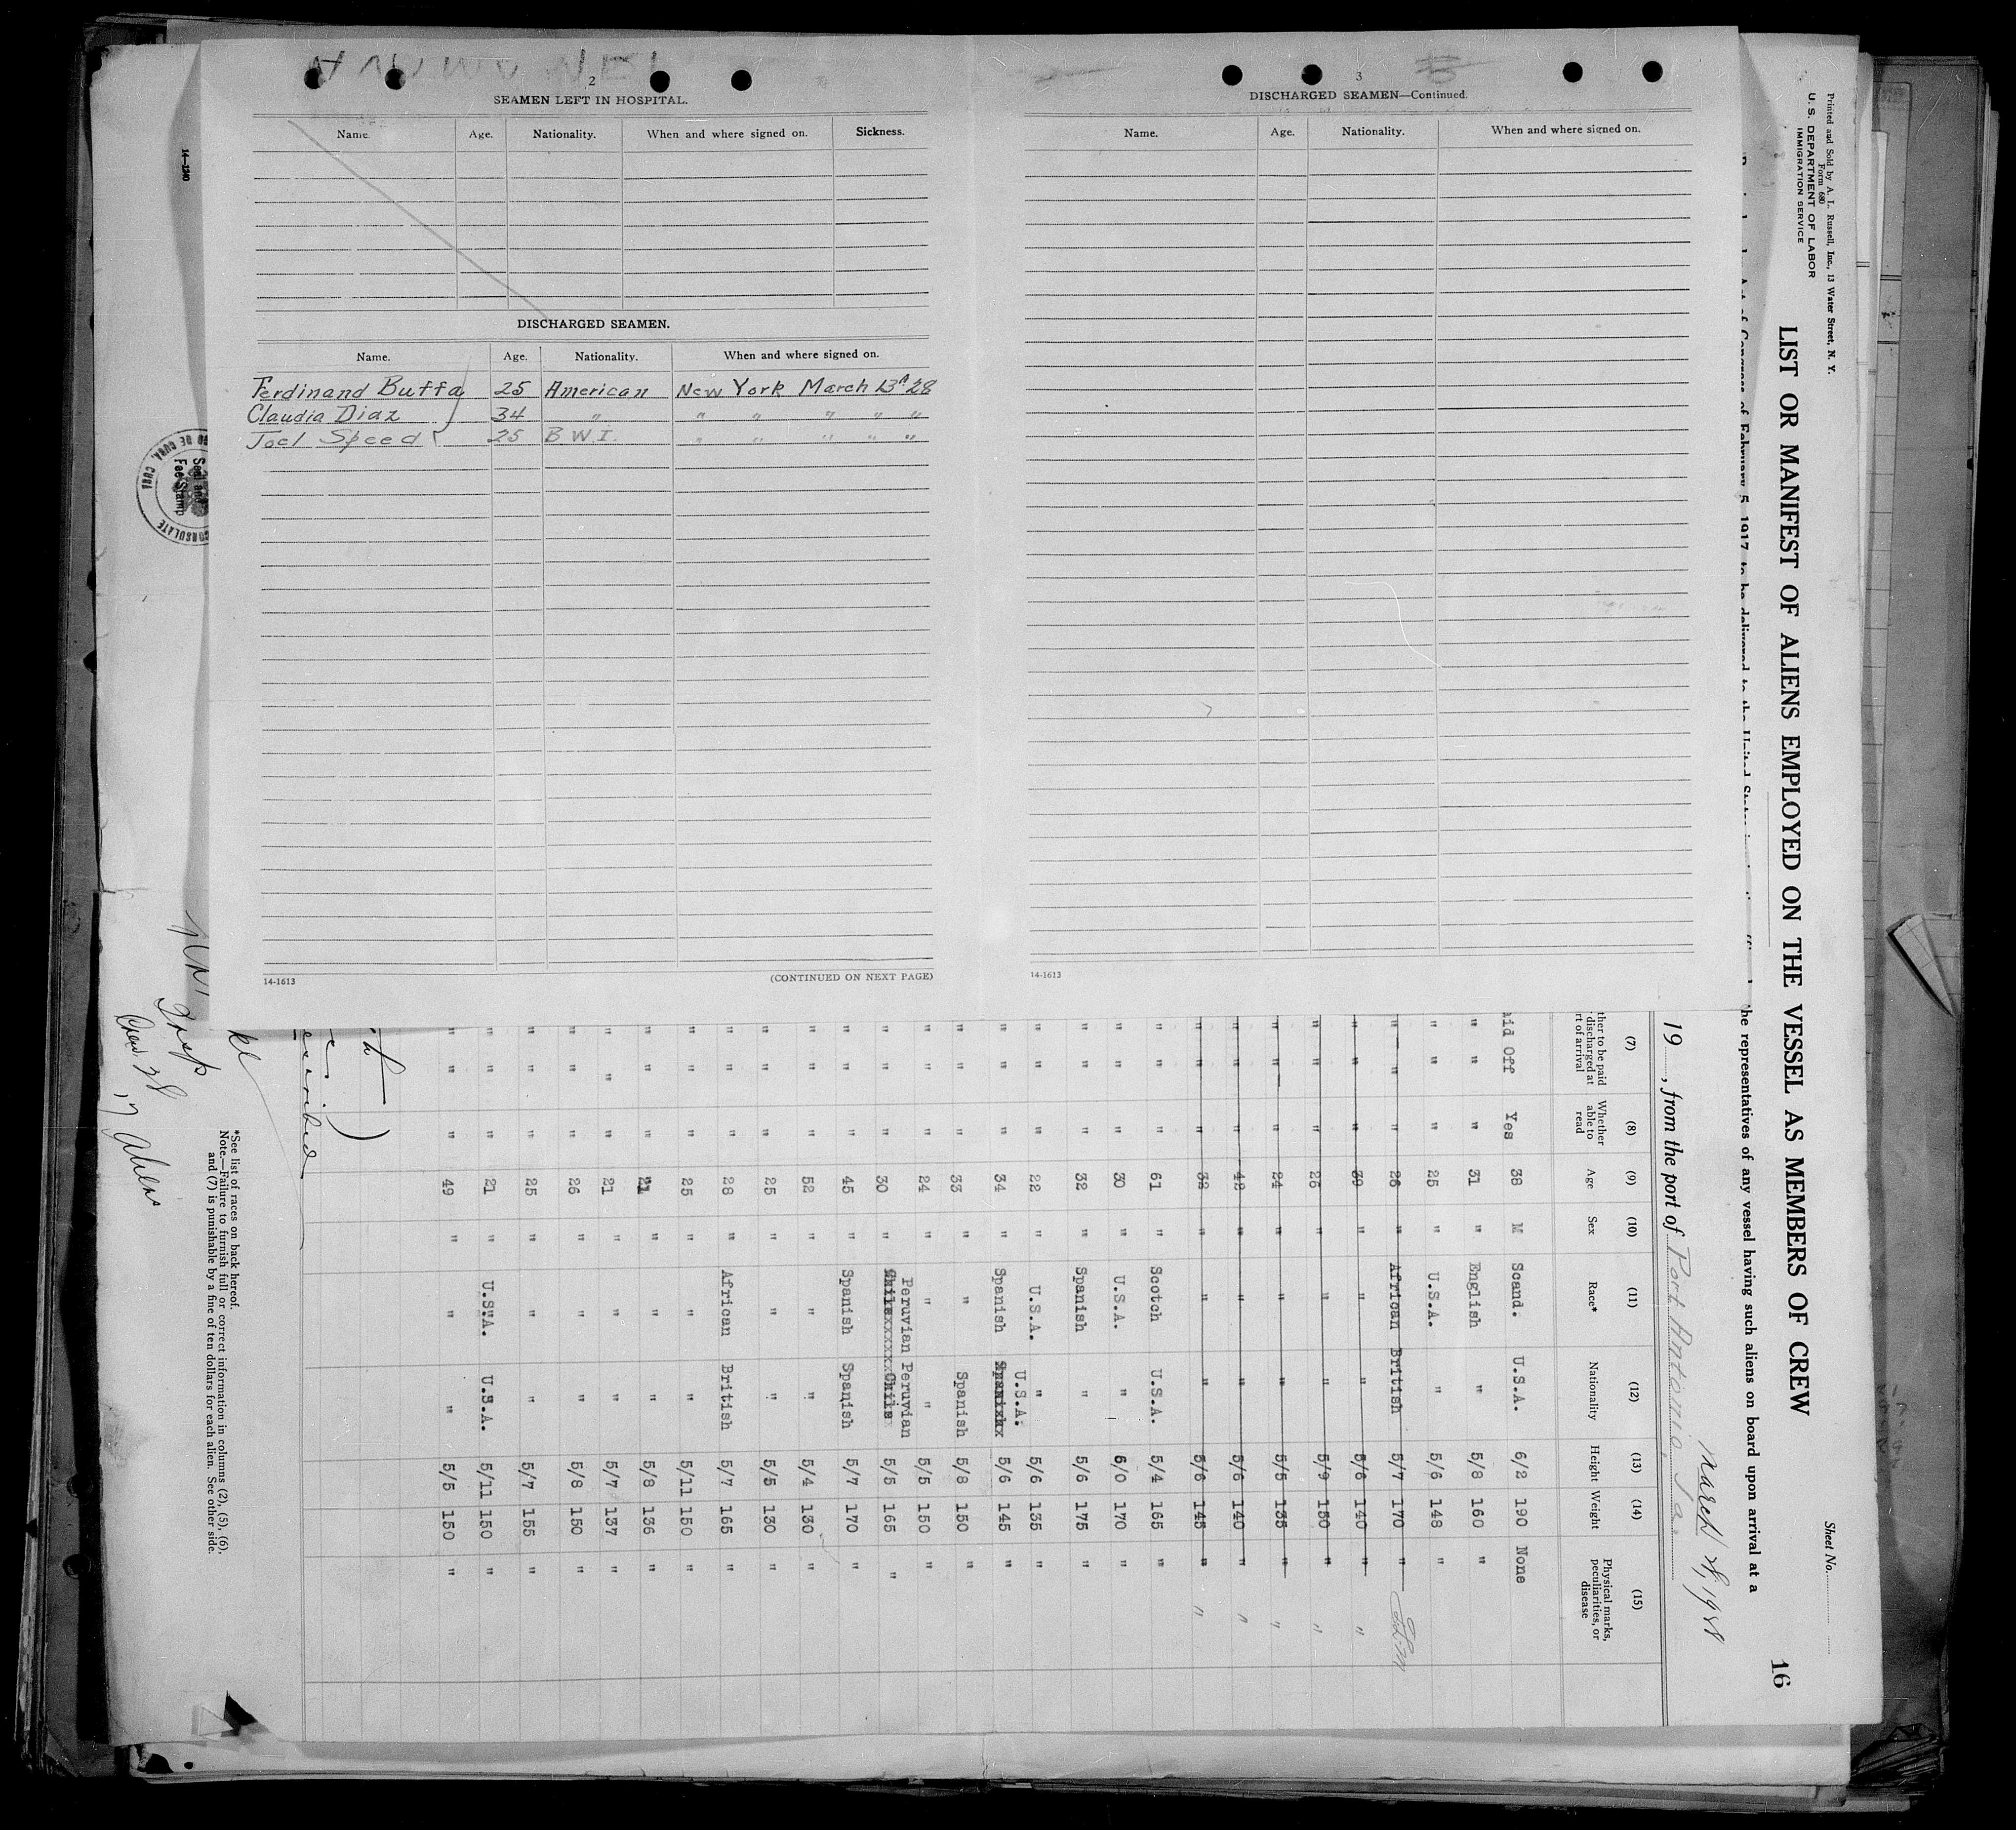 2
SEAMEN LEFT IN HOSPITAL.
Name. Age. Nationality. When and where signed on. Sickness.
DISCHARGED SEAMEN.
Name. Age. Nationality. When and where signed on.
Ferdinand Buffa 25 American New York March 13 28
Claudia Diaz 34 " " " " " "
Joel Speed 25 B.W.I. " " " " "
14-1613 (CONTINUED ON NEXT PAGE)
3
DISCHARGED SEAMEN—Continued.
Name. Age. Nationality. When and where signed on.
14-1613
14-1240
Seal and
Fee Stamp
CONSULATE
CUBA
Printed and Sold by A. L. Russell, Inc., 13 Water Street, N. Y.
Form 680
U. S. DEPARTMENT OF LABOR
IMMIGRATION SERVICE
Sheet No.
16
LIST OR MANIFEST OF ALIENS EMPLOYED ON THE VESSEL AS MEMBERS OF CREW
Act of Congress of February 5, 1917, to be delivered to the United States
the representatives of any vessel having such aliens on board upon arrival at a
March 1928
19 , from the port of Port Antonio, Ja.
(7) (8) (9) (10) (11) (12) (13) (14) (15)
ther to be paid
discharged at
rt of arrival
Whether
able to
read
Age
Sex
Race*
Nationality
Height
Weight
Physical marks,
peculiarities, or
disease
aid Off Yes 38 M Scand. U.S.A. 6/2 190 None
" " " 31 " English " 5/8 160 "
" " " 25 " U.S.A. " 5/6 148 "
" " " 26 " African British 5/7 170 "
" " " 39 " " " 5/6 140 " "
" " " 26 " " " 5/9 150 " "
" " " 24 " " " 5/5 135 " "
" " " 42 " " " 5/6 140 " "
" " " 32 " " " 5/6 145 " "
" " " 61 " Scotch U.S.A. 5/4 165 "
" " " 30 " U.S.A. " 6/0 170 "
" " " 32 " Spanish " 5/6 175 "
" " " 22 " U.S.A. " 5/6 135 "
U.S.A.
" " " 34 " Spanish Spanish 5/6 145 "
" " " 33 " " Spanish 5/8 150 "
" " " 24 " " " 5/5 150 "
Peruvian Peruvian
" " " 30 " Chile Chile 5/5 165 "
" " " 45 " Spanish Spanish 5/7 170 "
" " 52 " " " 5/4 130 "
" " " 25 " " " 5/5 130 "
" " " 28 " African British 5/7 165 "
" " " 25 " " " 5/11 150 "
" " " 21 " " " 5/8 136 "
" " " 21 " " " 5/7 137 "
" " " 26 " " " 5/8 150 "
" " " 25 " " " 5/7 155 "
" " " 21 " U.S.A. U.S.A. 5/11 150 "
" " " 49 " " " 5/5 150 "
*See list of races on back hereof.
Note.—Failure to furnish full or correct information in columns (2), (5), (6),
and (7) is punishable by a fine of ten dollars for each alien. See other side.
Insp
Crew 28
17 Aliens